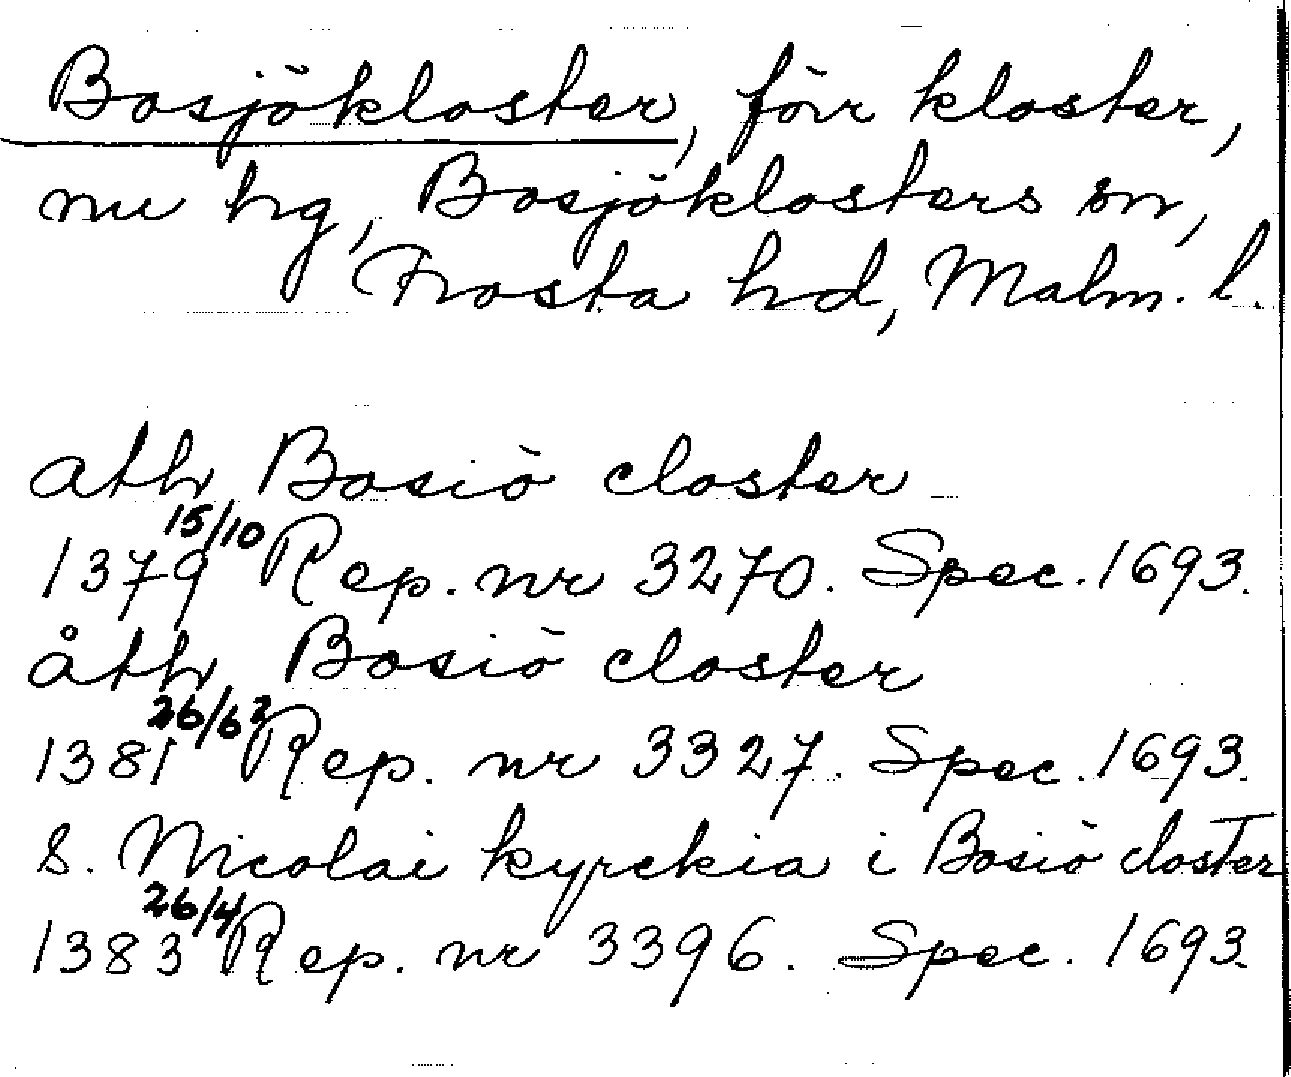 Bosjökloster, förr kloster,
nu hg, Bosjöklosters sn,
Frosta hd, Malm. l.
ath Bosiö closter
1379 15/10 Rep. nr 3270. Spec. 1693.
åth Bosiö closter
1381 26/62 Rep. nr 3327. Spec. 1693.
S. Nicolai kyrckia i Bosiö closter
1383 26/4 Rep. nr 3396. Spec. 1693.